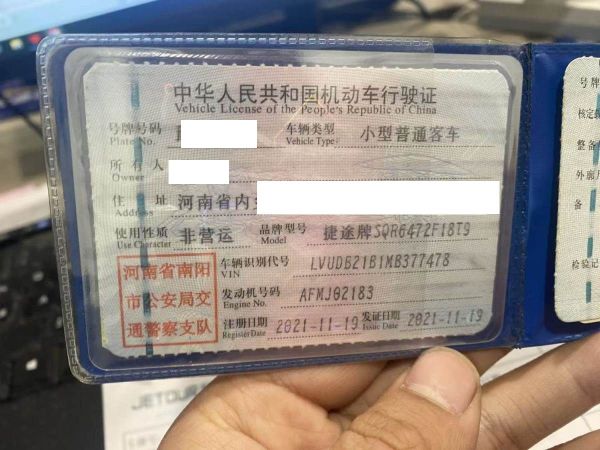 中华人民共和国机动车行驶证
Vehicle License of the People's Republic of China
号牌号码
Plate No.
车辆类型 小型普通客车
Vehicle Type
所有人
Owner
住址 河南省内
Address
使用性质 非营运
Use Character
品牌型号 捷途牌SQR6472F18T9
Model
车辆识别代号 LVUDB21B1MB377478
VIN
发动机号码 AFMJ02183
Engine No.
注册日期 2021-11-19
Register Date
发证日期 2021-11-19
Issue Date
河南省南阳
市公安局交
通警察支队
号牌
核定载
整备
外廓尺
备
检验记